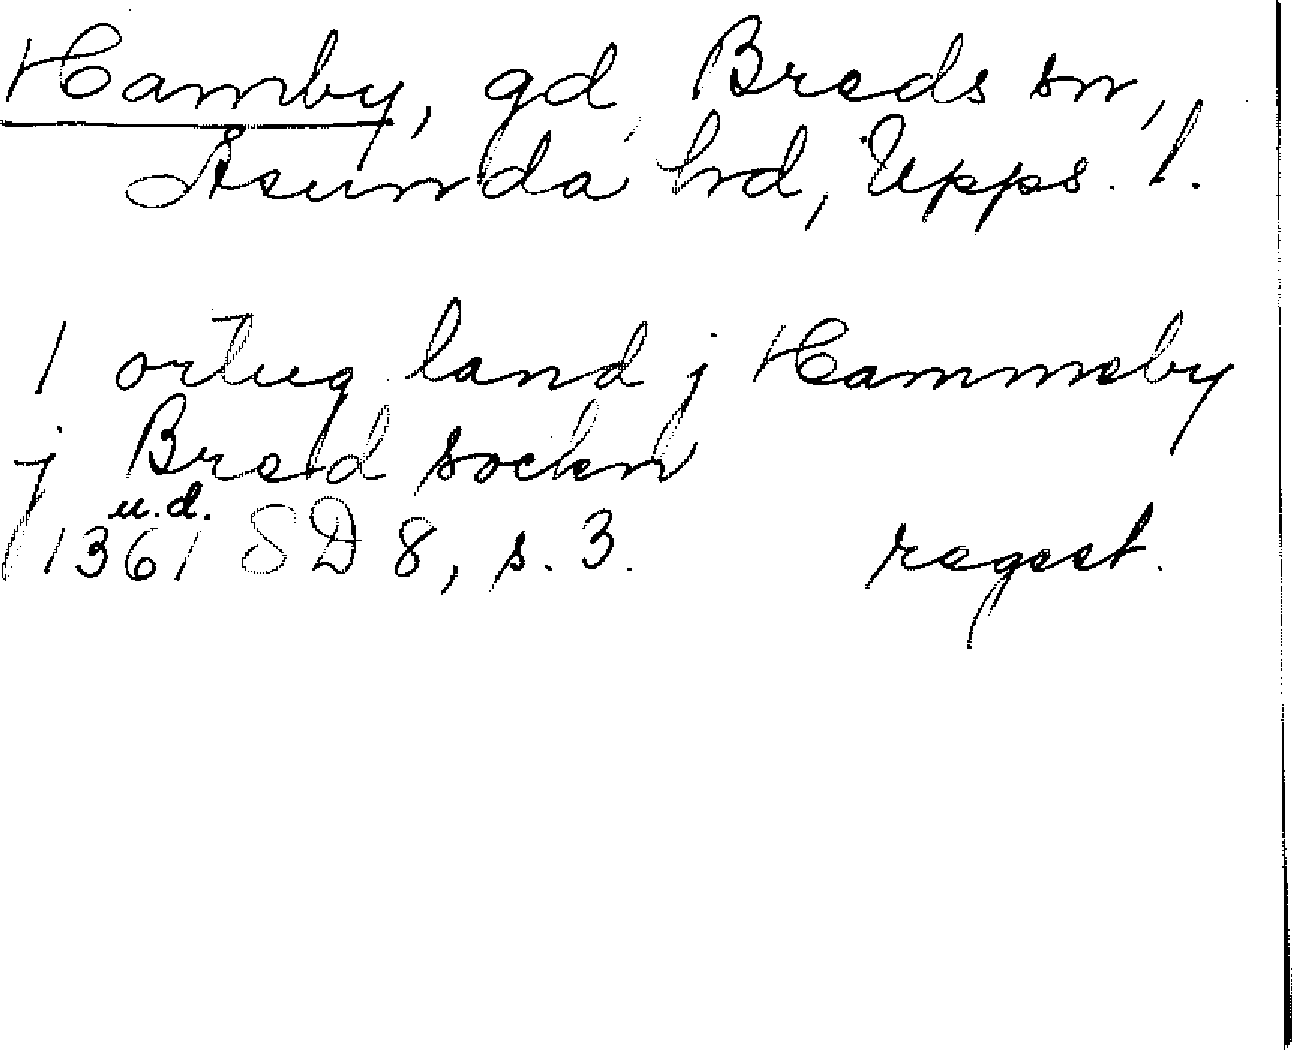 Hamby, gd, Breds sn,
Åsunda hrd, Upps. l.
1 ortug land j Hammeby
j Bred sockn
u.d.
1361 SD 8, s. 3. regest.